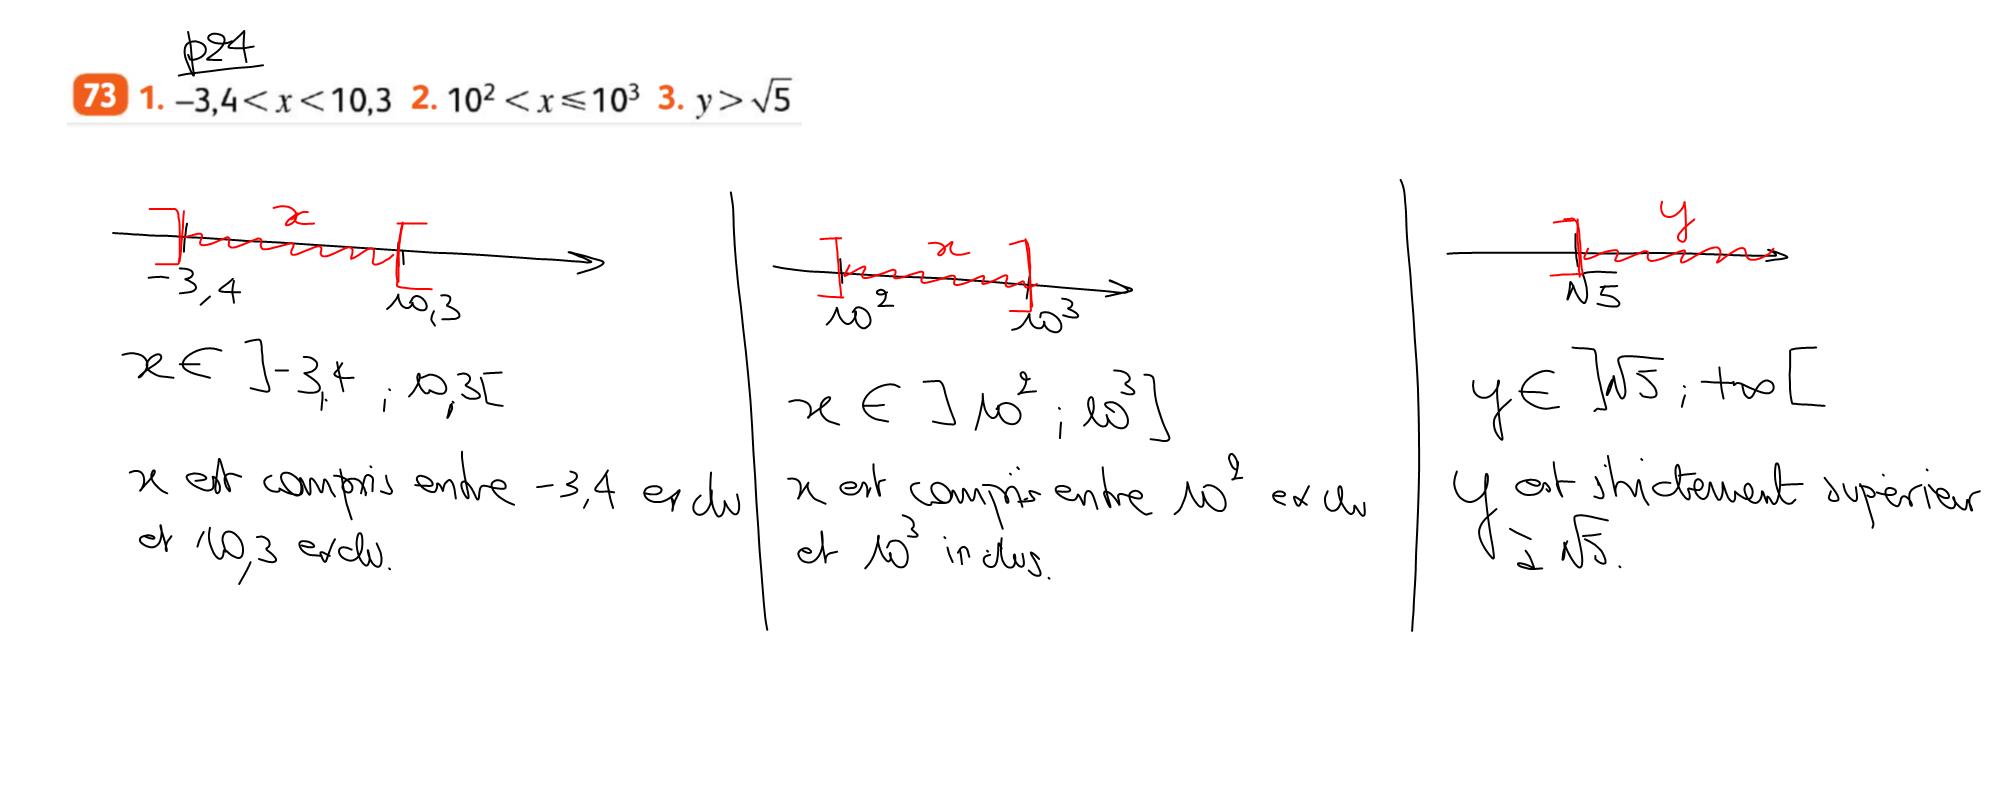 p24
73 1. −3,4<x<10,3 2. 10² <x⩽10³ 3. y>√5
x
-3,4 10,3
x ∈ ]-3,4 ; 10,3[
x est compris entre -3,4 exclu
et 10,3 exclu.
x
10² 10³
x ∈ ]10² ; 10³]
x est compris entre 10² exclu
et 10³ inclus.
y
√5
y ∈ ]√5 ; +∞[
y est strictement supérieur
à √5.